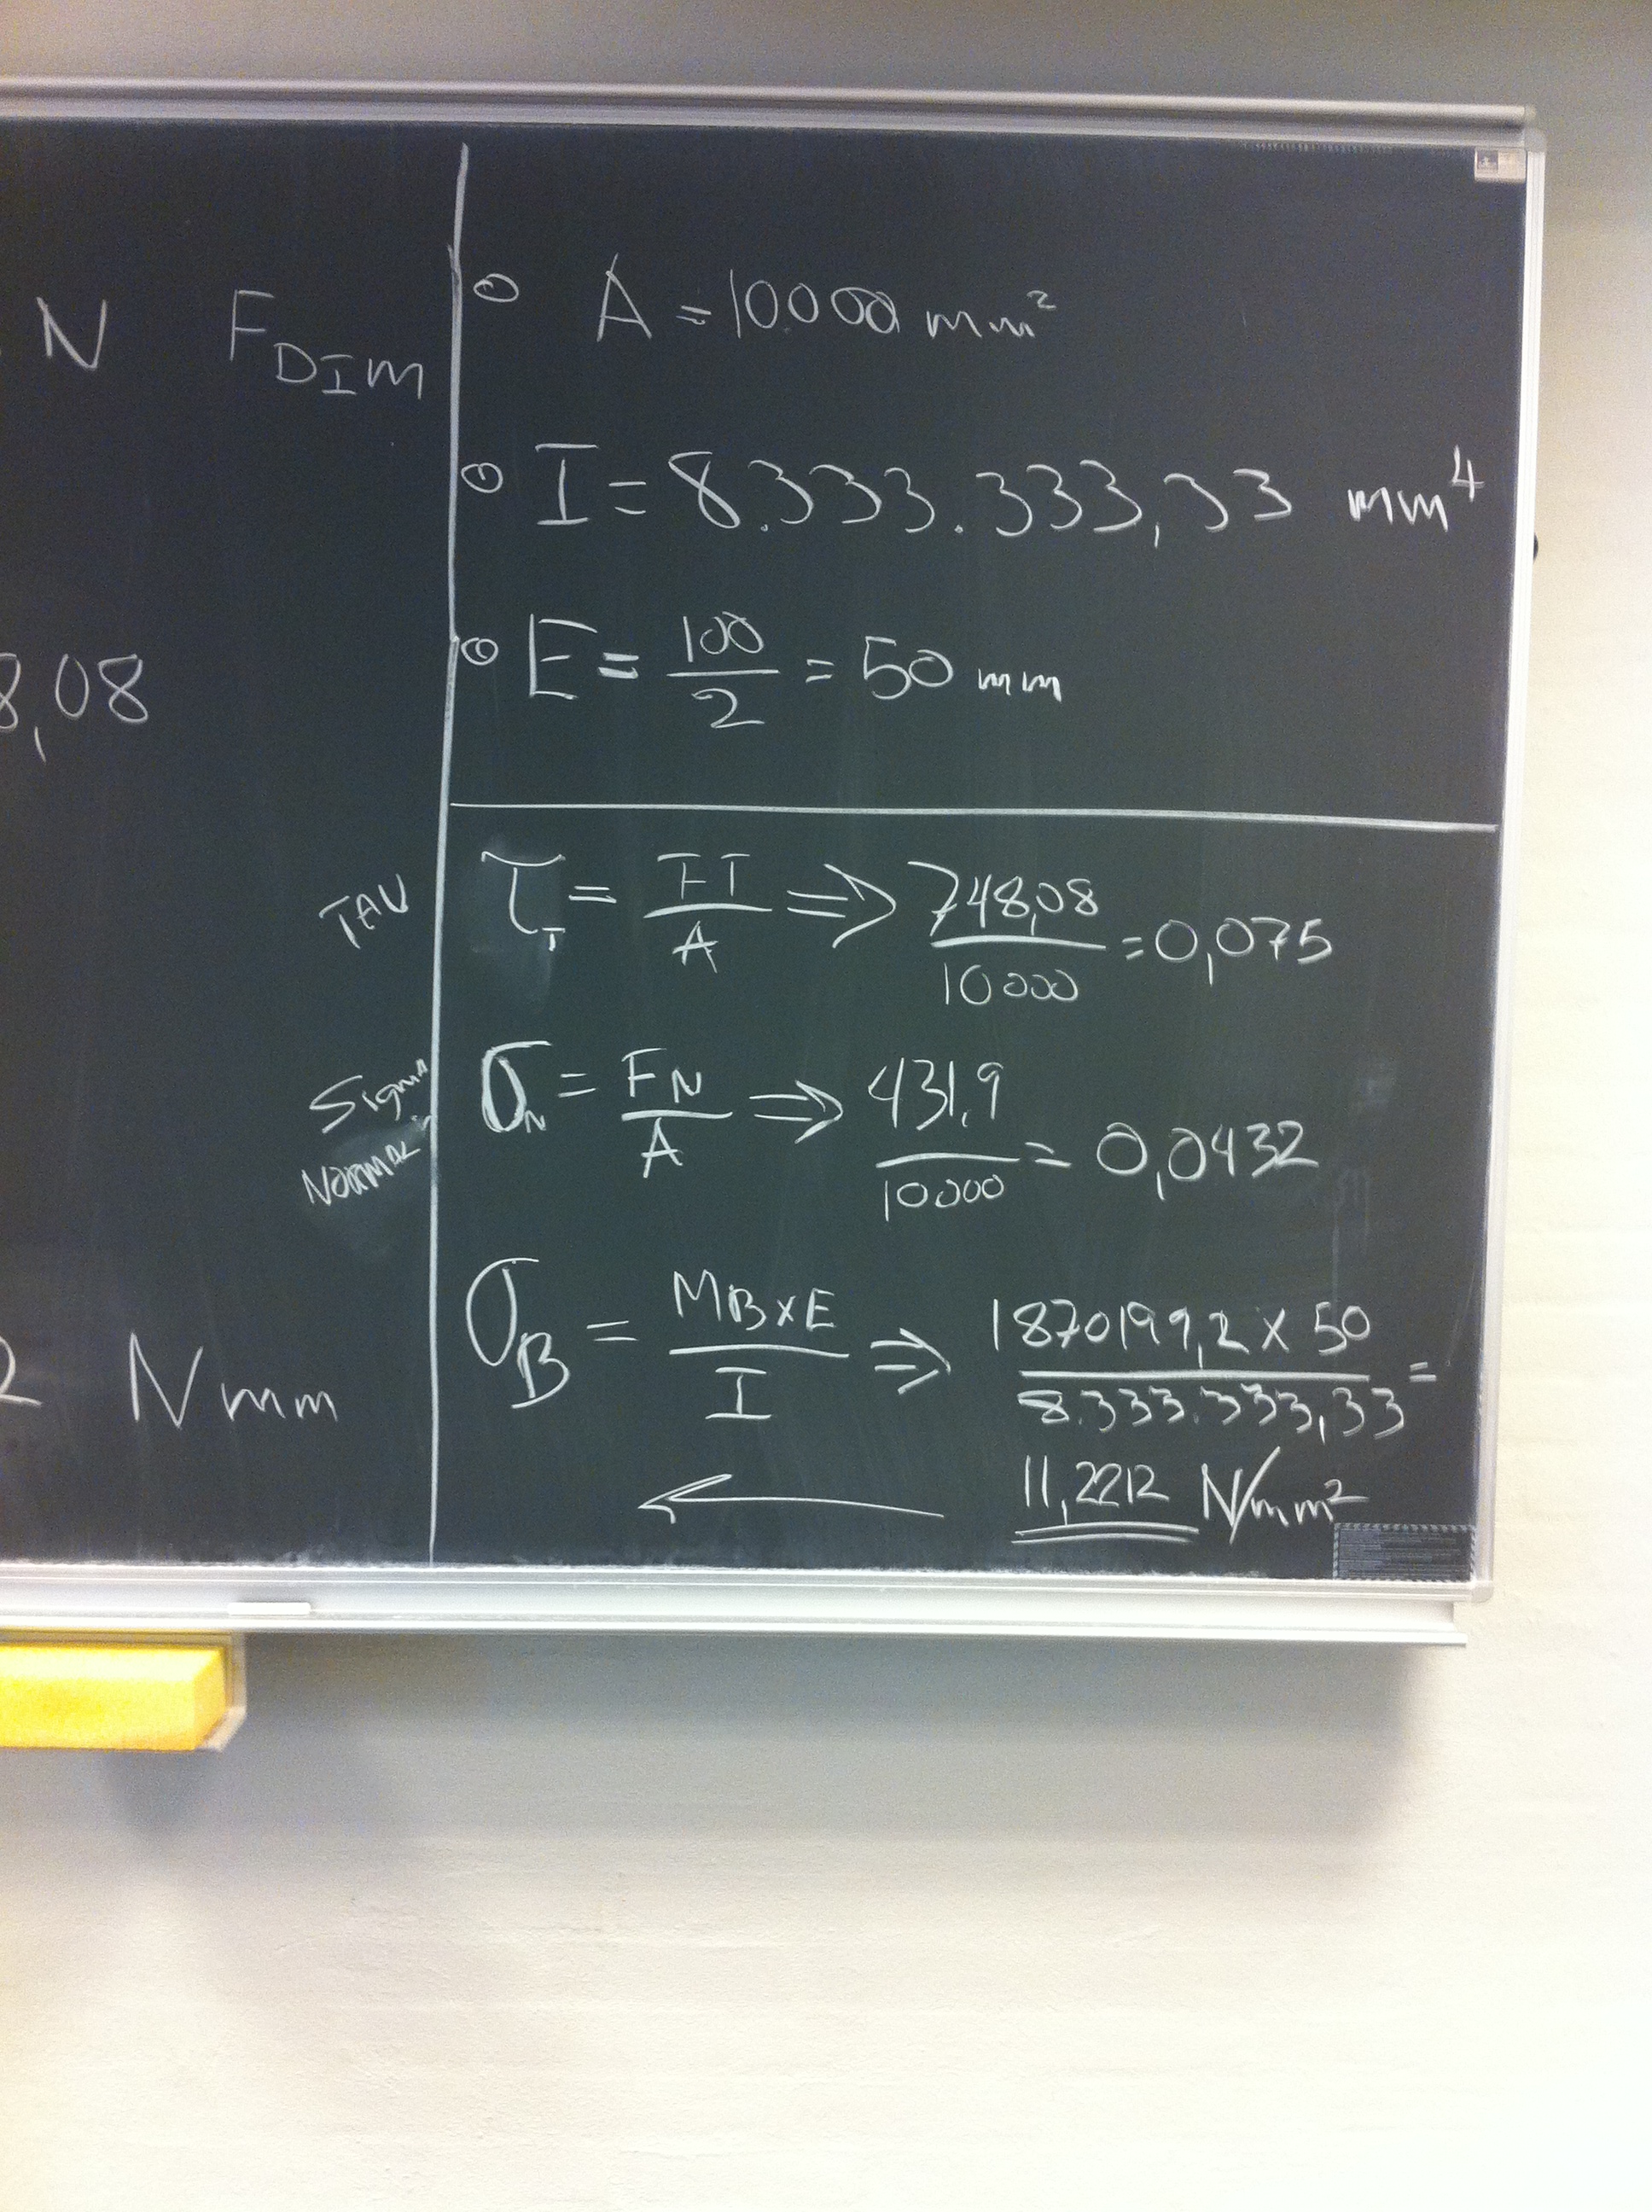 N F_DIM
8,08
2 Nmm
A = 10.000 mm²
I = 8.333.333,33 mm⁴
E = 100/2 = 50 mm
TAU τ_T = FT/A ⇒ 748,08/10000 = 0,075
Sigma Normal σ_N = F_N/A ⇒ 431,9/10000 = 0,0432
σ_B = M_B×E/I ⇒ 1870199,2 × 50/8.333.333,33 =
← 11,2212 N/mm²